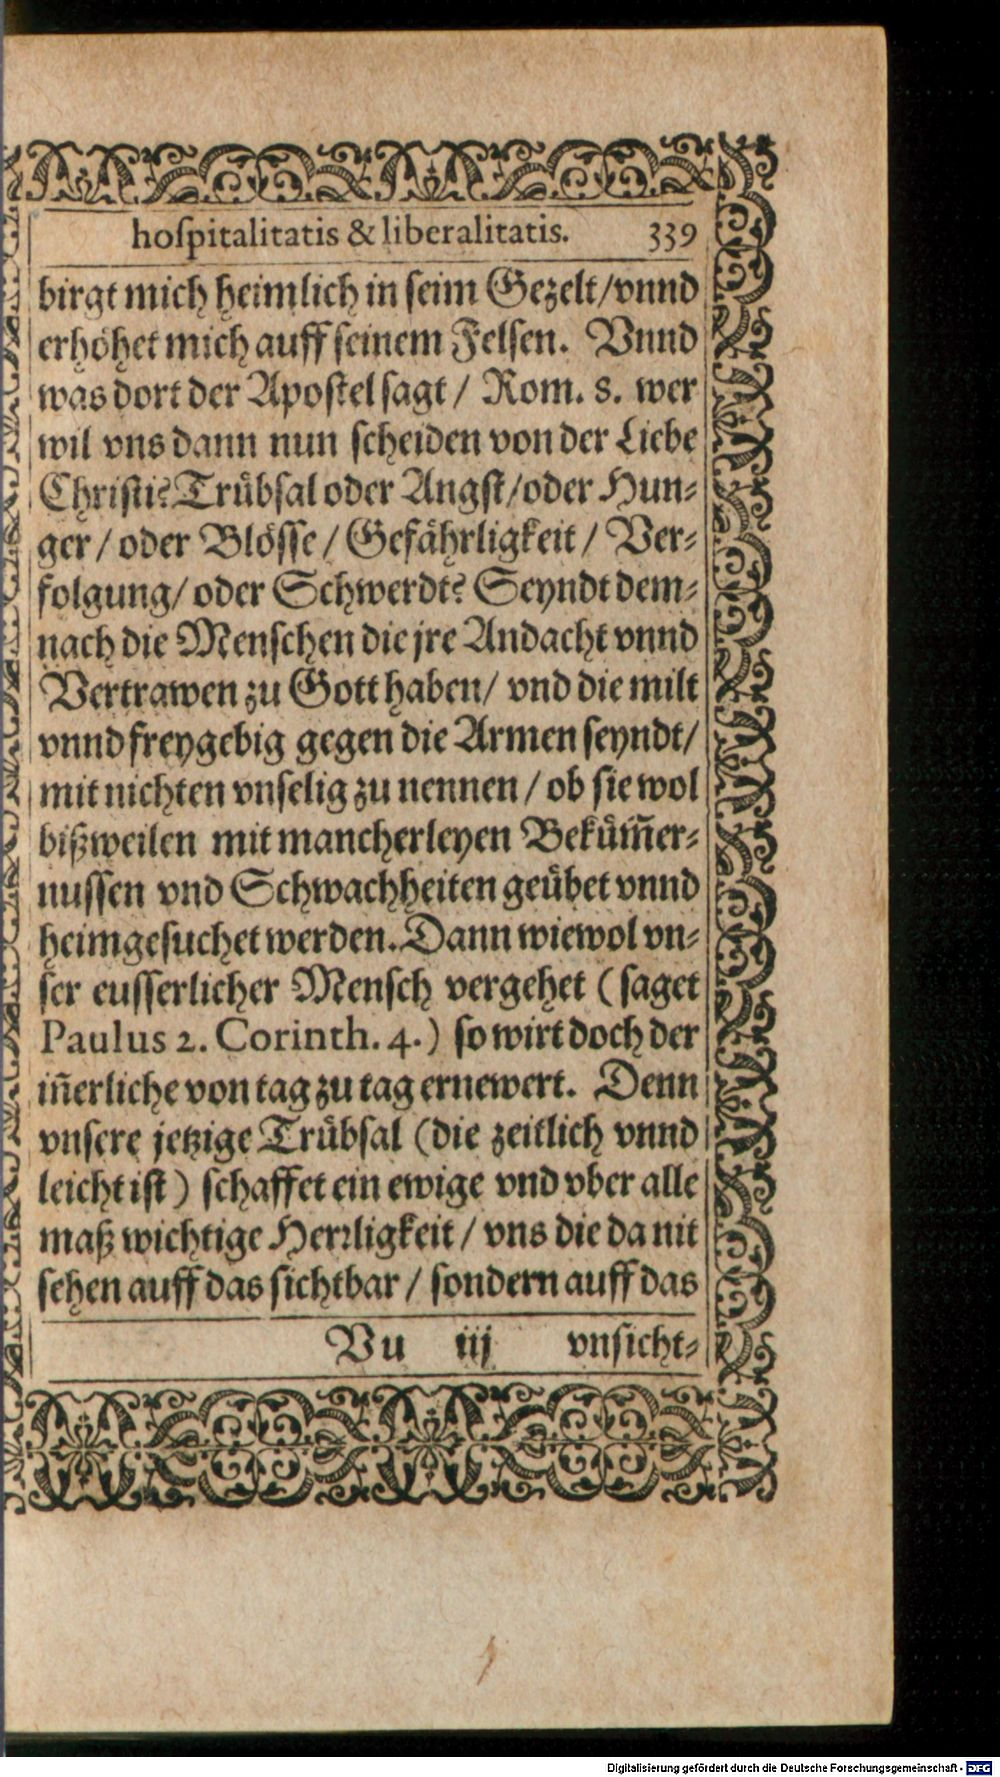 hoſpitalitatis & liberalitatis. 339
birgt mich heimlich in ſeim Gezelt/vnnd
erhöhet mich auff ſeinem Felſen. Vnnd
was dort der Apoſtel ſagt / Rom. 8. wer
wil vns dann nun ſcheiden von der Liebe
Chriſti? Trübſal oder Angſt/oder Hun⸗
ger / oder Blöſſe / Gefährligkeit / Ver⸗
folgung/ oder Schwerdt? Seyndt dem⸗
nach die Menſchen die jre Andacht vnnd
Vertrawen zu Gott haben/ vnd die milt
vnnd freygebig gegen die Armen ſeyndt/
mit nichten vnſelig zu nennen / ob ſie wol
bißweilen mit mancherleyen Bekům̃er⸗
nuſſen vnd Schwachheiten geübet vnnd
heimgeſuchet werden. Dann wiewol vn⸗
ſer euſſerlicher Menſch vergehet (ſaget
Paulus 2. Corinth. 4.) ſo wirt doch der
iñerliche von tag zu tag ernewert. Denn
vnſere jetzige Trübſal (die zeitlich vnnd
leicht iſt) ſchaffet ein ewige vnd vber alle
maß wichtige Herꝛligkeit / vns die da nit
ſehen auff das ſichtbar / ſondern auff das
Vu iij vnſicht⸗
Digitalisierung gefördert durch die Deutsche Forschungsgemeinschaft - DFG